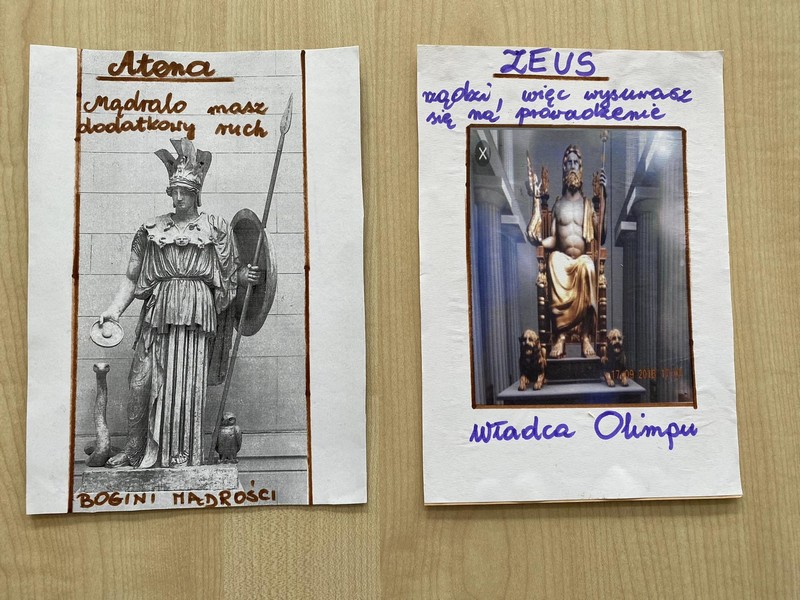 Atena
Mądralo masz
dodatkowy ruch
BOGINI MĄDROŚCI
ZEUS
rządzi, więc wysuwasz
się na prowadzenie
X
Władca Olimpu